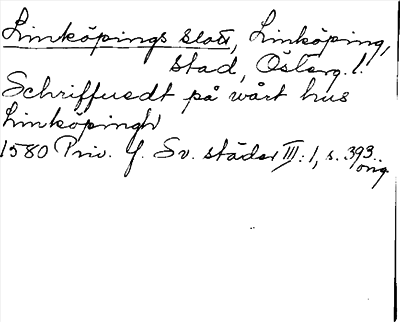 Linköpings slott, Linköping,
stad, Österg. l.
Schriffuedt på wårt hus
Linköpingh
1580 Priv. f. Sv. städer III:1, s. 393.
orig.